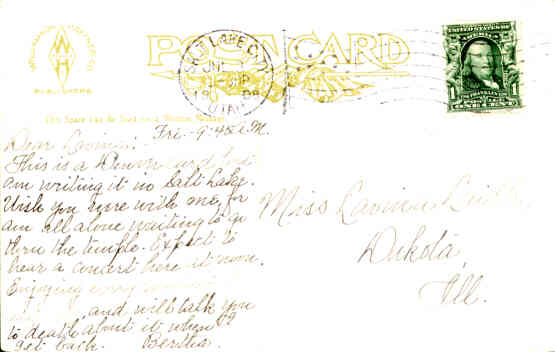 POST CARD
SALT LAKE CITY
UTAH
1 1
This Space can be Used for a Written Message
Fri - 9-45 A.M.
Dear Lavinia:-
This is a Denver card but
am writing it in Salt Lake.
Wish you were with me, for
am all alone waiting to go
thru the temple. Expect to
hear a concert here at noon.
Enjoying every
and will talk you
to death about it when I
get back. Bertha.
Miss Lavinia
Dakota,
Ill.